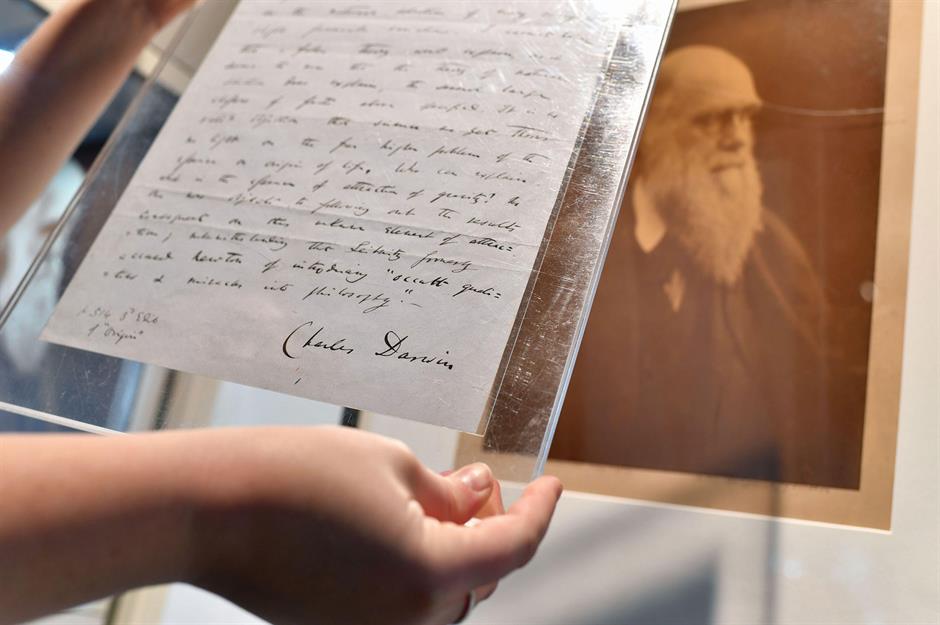 selection of
a false theory would explain, as it
seems to me that the theory of natural
selection does explain, the several large
classes of facts above specified. It is no
valid objection that science as yet throws
no light on the far higher problem of the
essence or origin of life. Who can explain
what is the essence of attraction of gravity? No
one now objects to following out the results
consequent on this unknown element of attrac=
-tion; notwithstanding that Leibnitz formerly
accused Newton of introducing "occult quali=
-ties & miracles into philosophy".—
Charles Darwin
p 514 5th Edit
of "Origin"